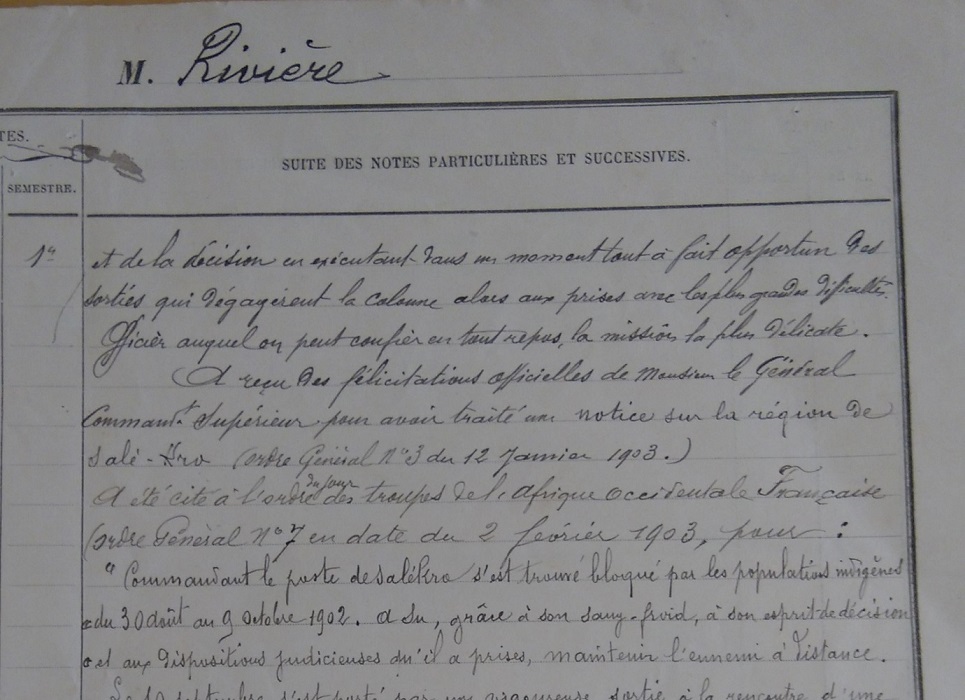 M. Rivière
TES.
SUITE DES NOTES PARTICULIÈRES ET SUCCESSIVES.
SEMESTRE.
1er et de la décision en exécutant dans un moment tout à fait opportun des
sorties qui dégagèrent la colonne alors aux prises avec les plus grandes difficultés.
Officier auquel on peut confier en tout repos, la mission la plus délicate.
A reçu des félicitations officielles de Monsieur le Général
Commandt Supérieur pour avoir traité une notice sur la région de
Salé-Kro (ordre Général N°3 du 12 Janvier 1903.)
A été cité à l'ordre du jour des troupes de l'Afrique Occidentale Française
(ordre Général N°7 en date du 2 février 1903, pour :
"Commandant le poste de Salékro s'est trouvé bloqué par les populations indigènes
du 30 août au 9 octobre 1902. a su, grâce à son sang-froid, à son esprit de décision
et aux dispositions judicieuses qu'il a prises, maintenir l'ennemi à distance.
Le 10 septembre s'est porté par une vigoureuse sortie à la rencontre d'une